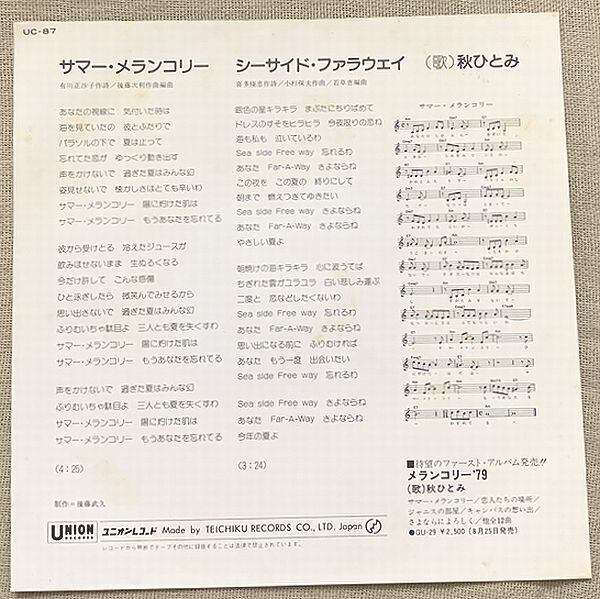 UC-87
サマー・メランコリー
有川正沙子作詩/後藤次利作曲編曲
あなたの視線に 気付いた時は
海を見ていたの 彼とふたりで
パラソルの下で 夏は止って
忘れてた恋が ゆっくり動き出す
声をかけないで 過ぎた夏はみんな幻
姿見せないで 懐かしさはとても辛いわ
サマー・メランコリー 陽に灼けた肌は
サマー・メランコリー もうあなたを忘れてる
彼から受けとる 冷えたジュースが
飲みほせないまま 生ぬるくなる
今だけ許して こんな感傷
ひと泳ぎしたら 微笑んでみせるから
思い出さないで 過ぎた夏はみんな幻
ふりむいちゃ駄目よ 三人とも夏を失くすわ
サマー・メランコリー 陽に灼けた肌は
サマー・メランコリー もうあなたを忘れてる
声をかけないで 過ぎた夏はみんな幻
ふりむいちゃ駄目よ 三人とも夏を失くすわ
サマー・メランコリー 陽に灼けた肌は
サマー・メランコリー もうあなたを忘れてる
(4:25)
制作=後藤武久
シーサイド・ファラウェイ
喜多條忠作詩/小杉保夫作曲/若草恵編曲
銀色の星キラキラ まぶたにちりばめて
ドレスのすそをヒラヒラ 今夜限りの恋ね
海も私も 泣いているわ
Sea side Free way 忘れるわ
あなた Far-A-Way さよならね
この夜を この夏の 終りにして
朝まで 燃えつきてゆきたい
Sea side Free way さよならね
あなた Far-A-Way さよならね
やさしい夏よ
朝焼けの海キラキラ 心に波うてば
ちぎれた雲がユラユラ 白い悲しみ運ぶ
二度と 恋などしたくないわ
Sea side Free way 忘れるわ
あなた Far-A-Way さよならね
思い出になる前に ふりむければ
あなた もう一度 出会いたい
Sea side Free way 忘れるわ
Sea side Free way さよならね
あなた Far-A-Way さよならね
今年の夏よ
(3:24)
(歌)秋ひとみ
サマー・メランコリー
■待望のファースト・アルバム発売!!
メランコリー'79
(歌)秋ひとみ
サマー・メランコリー/恋人たちの場所/
ジャニスの部屋/キャンパスの想い出/
さよならによろしく/他全12曲
●GU-29 ¥2,500(8月25日発売)
UNION RECORDS
ユニオンレコード Made by TEICHIKU RECORDS CO., LTD. Japan
レコードから無断でテープその他に録音することは法律で禁止されています。